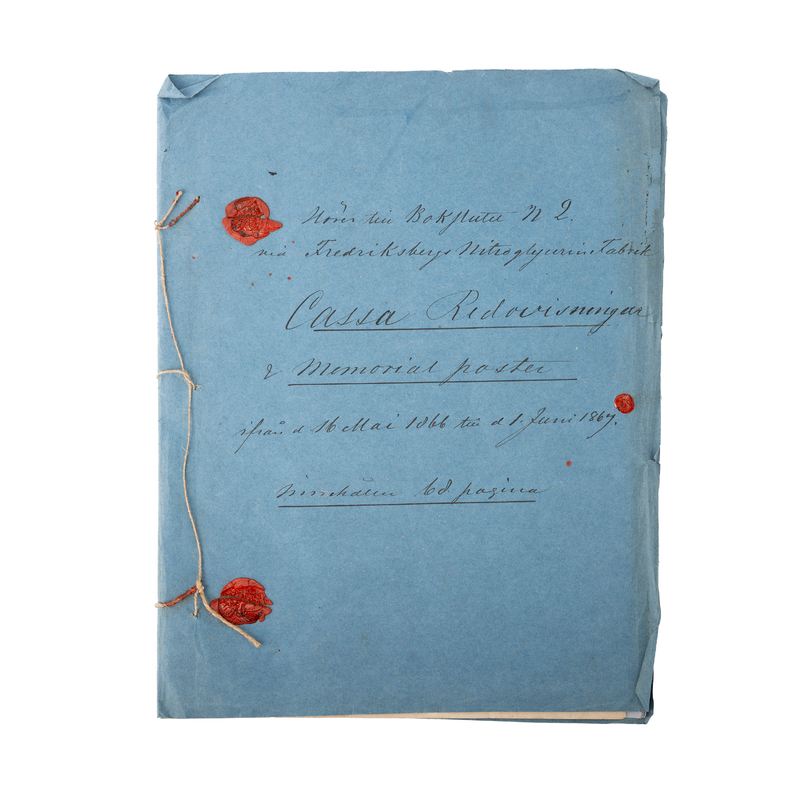 Hörer till Bokslutet N 2.
vid Fredriksbergs Nitroglycerin Fabrik
Cassa Redovisningar
& Memorial poster
ifrån d 16 Mai 1866 till d 1. Juni 1867.
Innehåller 68 pagina